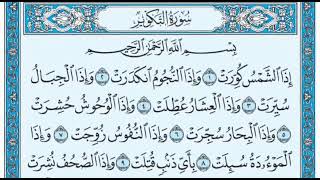 سُورَةُ التَّكْوِيرِ
بِسْمِ اللَّهِ الرَّحْمَٰنِ الرَّحِيمِ
إِذَا الشَّمْسُ كُوِّرَتْ ١ وَإِذَا النُّجُومُ انكَدَرَتْ ٢ وَإِذَا الْجِبَالُ
سُيِّرَتْ ٣ وَإِذَا الْعِشَارُ عُطِّلَتْ ٤ وَإِذَا الْوُحُوشُ حُشِرَتْ
٥ وَإِذَا الْبِحَارُ سُجِّرَتْ ٦ وَإِذَا النُّفُوسُ زُوِّجَتْ ٧ وَإِذَا
الْمَوْءُودَةُ سُئِلَتْ ٨ بِأَيِّ ذَنبٍ قُتِلَتْ ٩ وَإِذَا الصُّحُفُ نُشِرَتْ